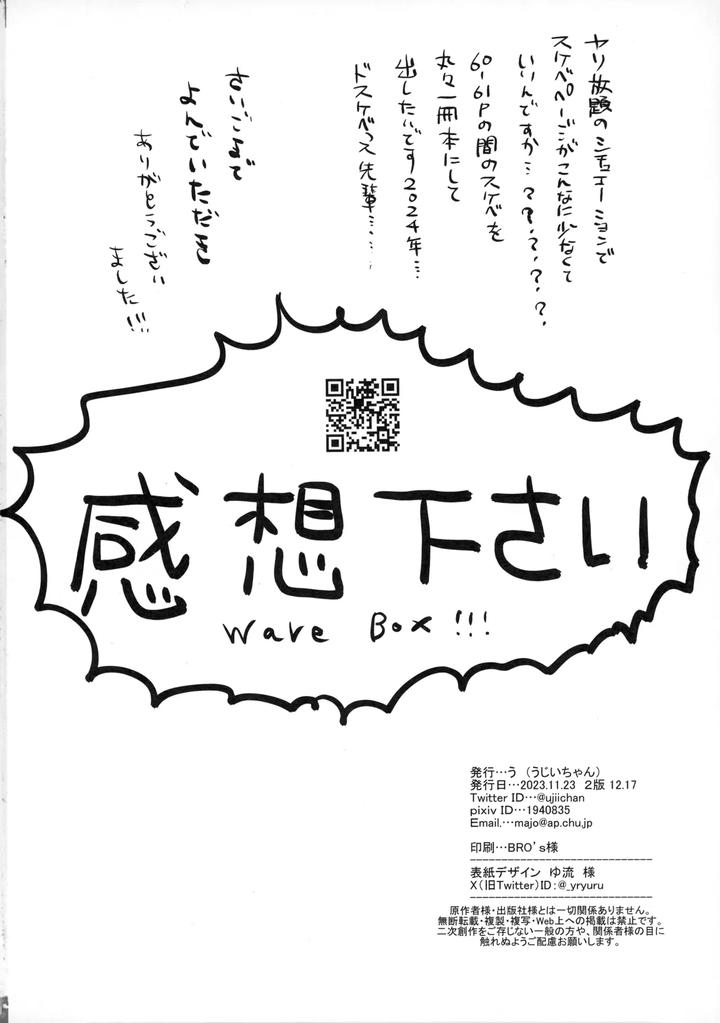 ヤリ放題のシチュエーションで
スケベページがこんなに少なくて
いいんですか…?????
60-61Pの間のスケベを
丸々一冊本にして
出したいです2024年…
ドスケベっス先輩……
さいごまで
よんでいただき
ありがとうござい
ました!!!
感想下さい
Wave Box!!!
発行…う（うじいちゃん）
発行日…2023.11.23 2版 12.17
Twitter ID…@ujiichan
pixiv ID…1940835
Email.…majo@ap.chu.jp
印刷…BRO's様
表紙デザイン ゆ流 様
X(旧Twitter)ID:@_yryuru
原作者様・出版社様とは一切関係ありません。
無断転載・複製・複写・Web上への掲載は禁止です。
二次創作をご存じない一般の方や、関係者様の目に
触れぬようご配慮お願いします。